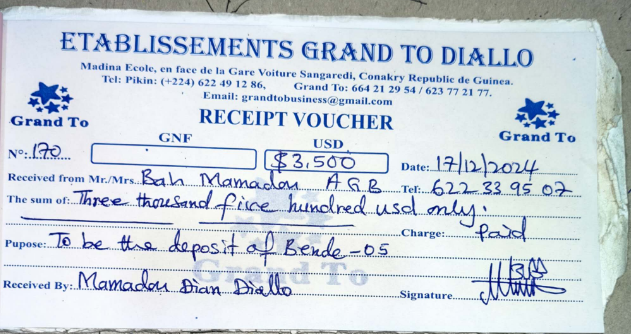 ETABLISSEMENTS GRAND TO DIALLO
Madina Ecole, en face de la Gare Voiture Sangaredi, Conakry Republic de Guinea.
Tel: Pikin: (+224) 622 49 12 86, Grand To: 664 21 29 54 / 623 77 21 77.
Email: grandtobusiness@gmail.com
Grand To
RECEIPT VOUCHER
Grand To
GNF USD
N°: 170 $3,500 Date: 17/12/2024
Received from Mr./Mrs. Bah Mamadou AGB Tel: 622 33 95 07
The sum of: Three thousand five hundred usd only.
Charge: paid
Pupose: To be the deposit of Bende-05
Grand To
Received By: Mamadou Dian Diallo Signature